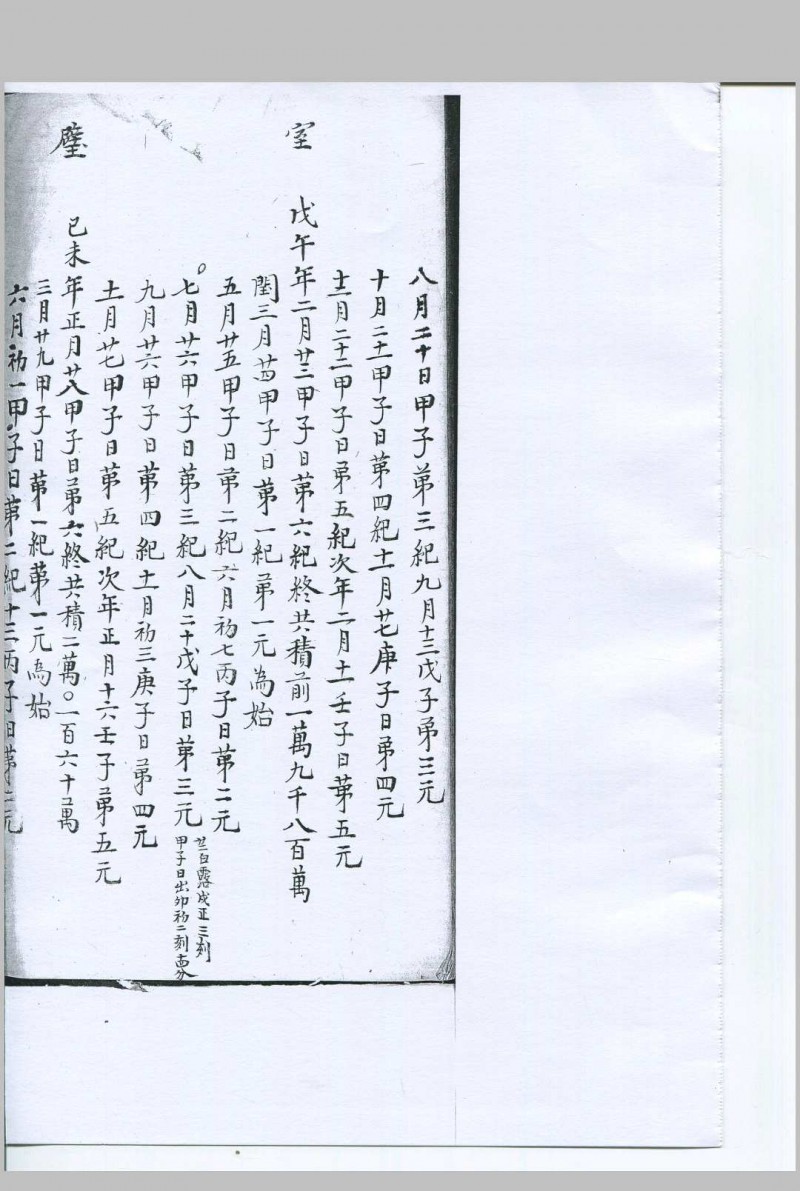 八月二十日甲子苐三紀九月十三戊子苐三元
十月二十一甲子日苐四紀十一月廿七庚子日苐四元
十二月二十二甲子日苐五紀次年二月十一壬子日苐五元
室 戊午年二月廿三甲子日苐六紀終共積前一萬九千八百萬
閏三月廿四甲子日苐一紀苐一元為始
五月廿五甲子日苐二紀六月初七丙子日苐二元
七月廿六甲子日苐三紀八月二十戊子日苐三元
廿二白露戌正三刻
甲子日出卯初二刻
九月廿六甲子日苐四紀十一月初三庚子日苐四元
十一月廿七甲子日苐五紀次年正月十六壬子苐五元
璧 己未年正月廿八甲子日苐六終共積二萬〇一百六十萬
三月廿九甲子日苐一紀苐一元為始
六月初一甲子日苐二紀十三丙子日苐二元